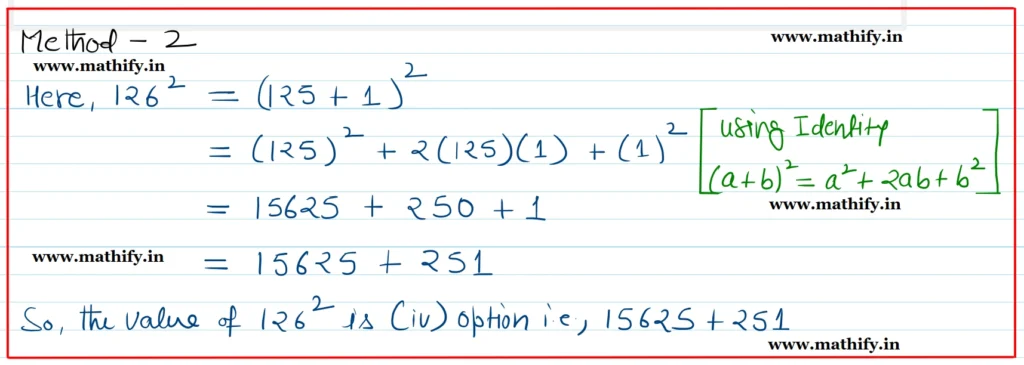 Method - 2
www.mathify.in
www.mathify.in
Here, 126² = (125 + 1)²
= (125)² + 2(125)(1) + (1)²
[using Identity
(a+b)² = a² + 2ab + b²]
www.mathify.in
= 15625 + 250 + 1
www.mathify.in
= 15625 + 251
So, the value of 126² is (iv) option i.e, 15625 + 251
www.mathify.in